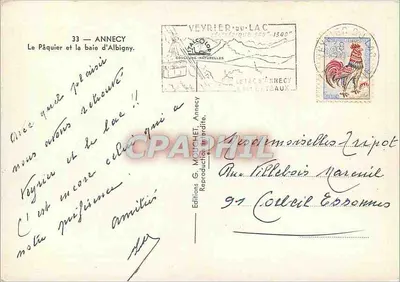 33 — ANNECY
Le Pâquier et la baie d'Albigny.
VEYRIER-DU-LAC
Avec quel plaisir
nous avons retrouvé
Veyrier et le lac !!
C'est encore celui qui a
notre préférence.
Amitiés
Editions G. MOUCHET, Annecy
Reproduction interdite.
CPAPHIL
Mesdemoiselles
Rue Villebois Mareuil
91 Corbeil Essonnes